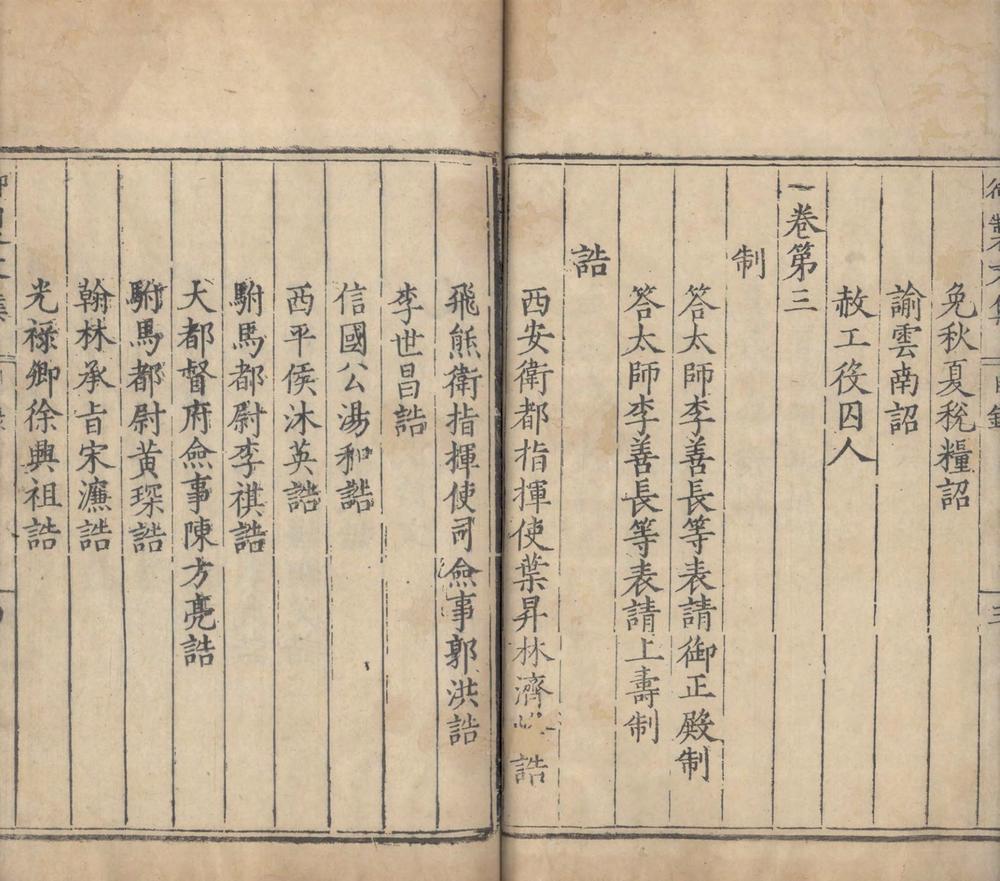 免秋夏稅糧詔
諭雲南詔
赦工役囚人
卷第三
制
答太師李善長等表請御正殿制
答太師李善長等表請上壽制
誥
西安衛都指揮使葉昇林濟 誥
飛熊衛指揮使司僉事郭洪誥
李世昌誥
信國公湯和誥
西平侯沐英誥
駙馬都尉李祺誥
大都督府僉事陳方亮誥
駙馬都尉黃琛誥
翰林承旨宋濂誥
光祿卿徐興祖誥